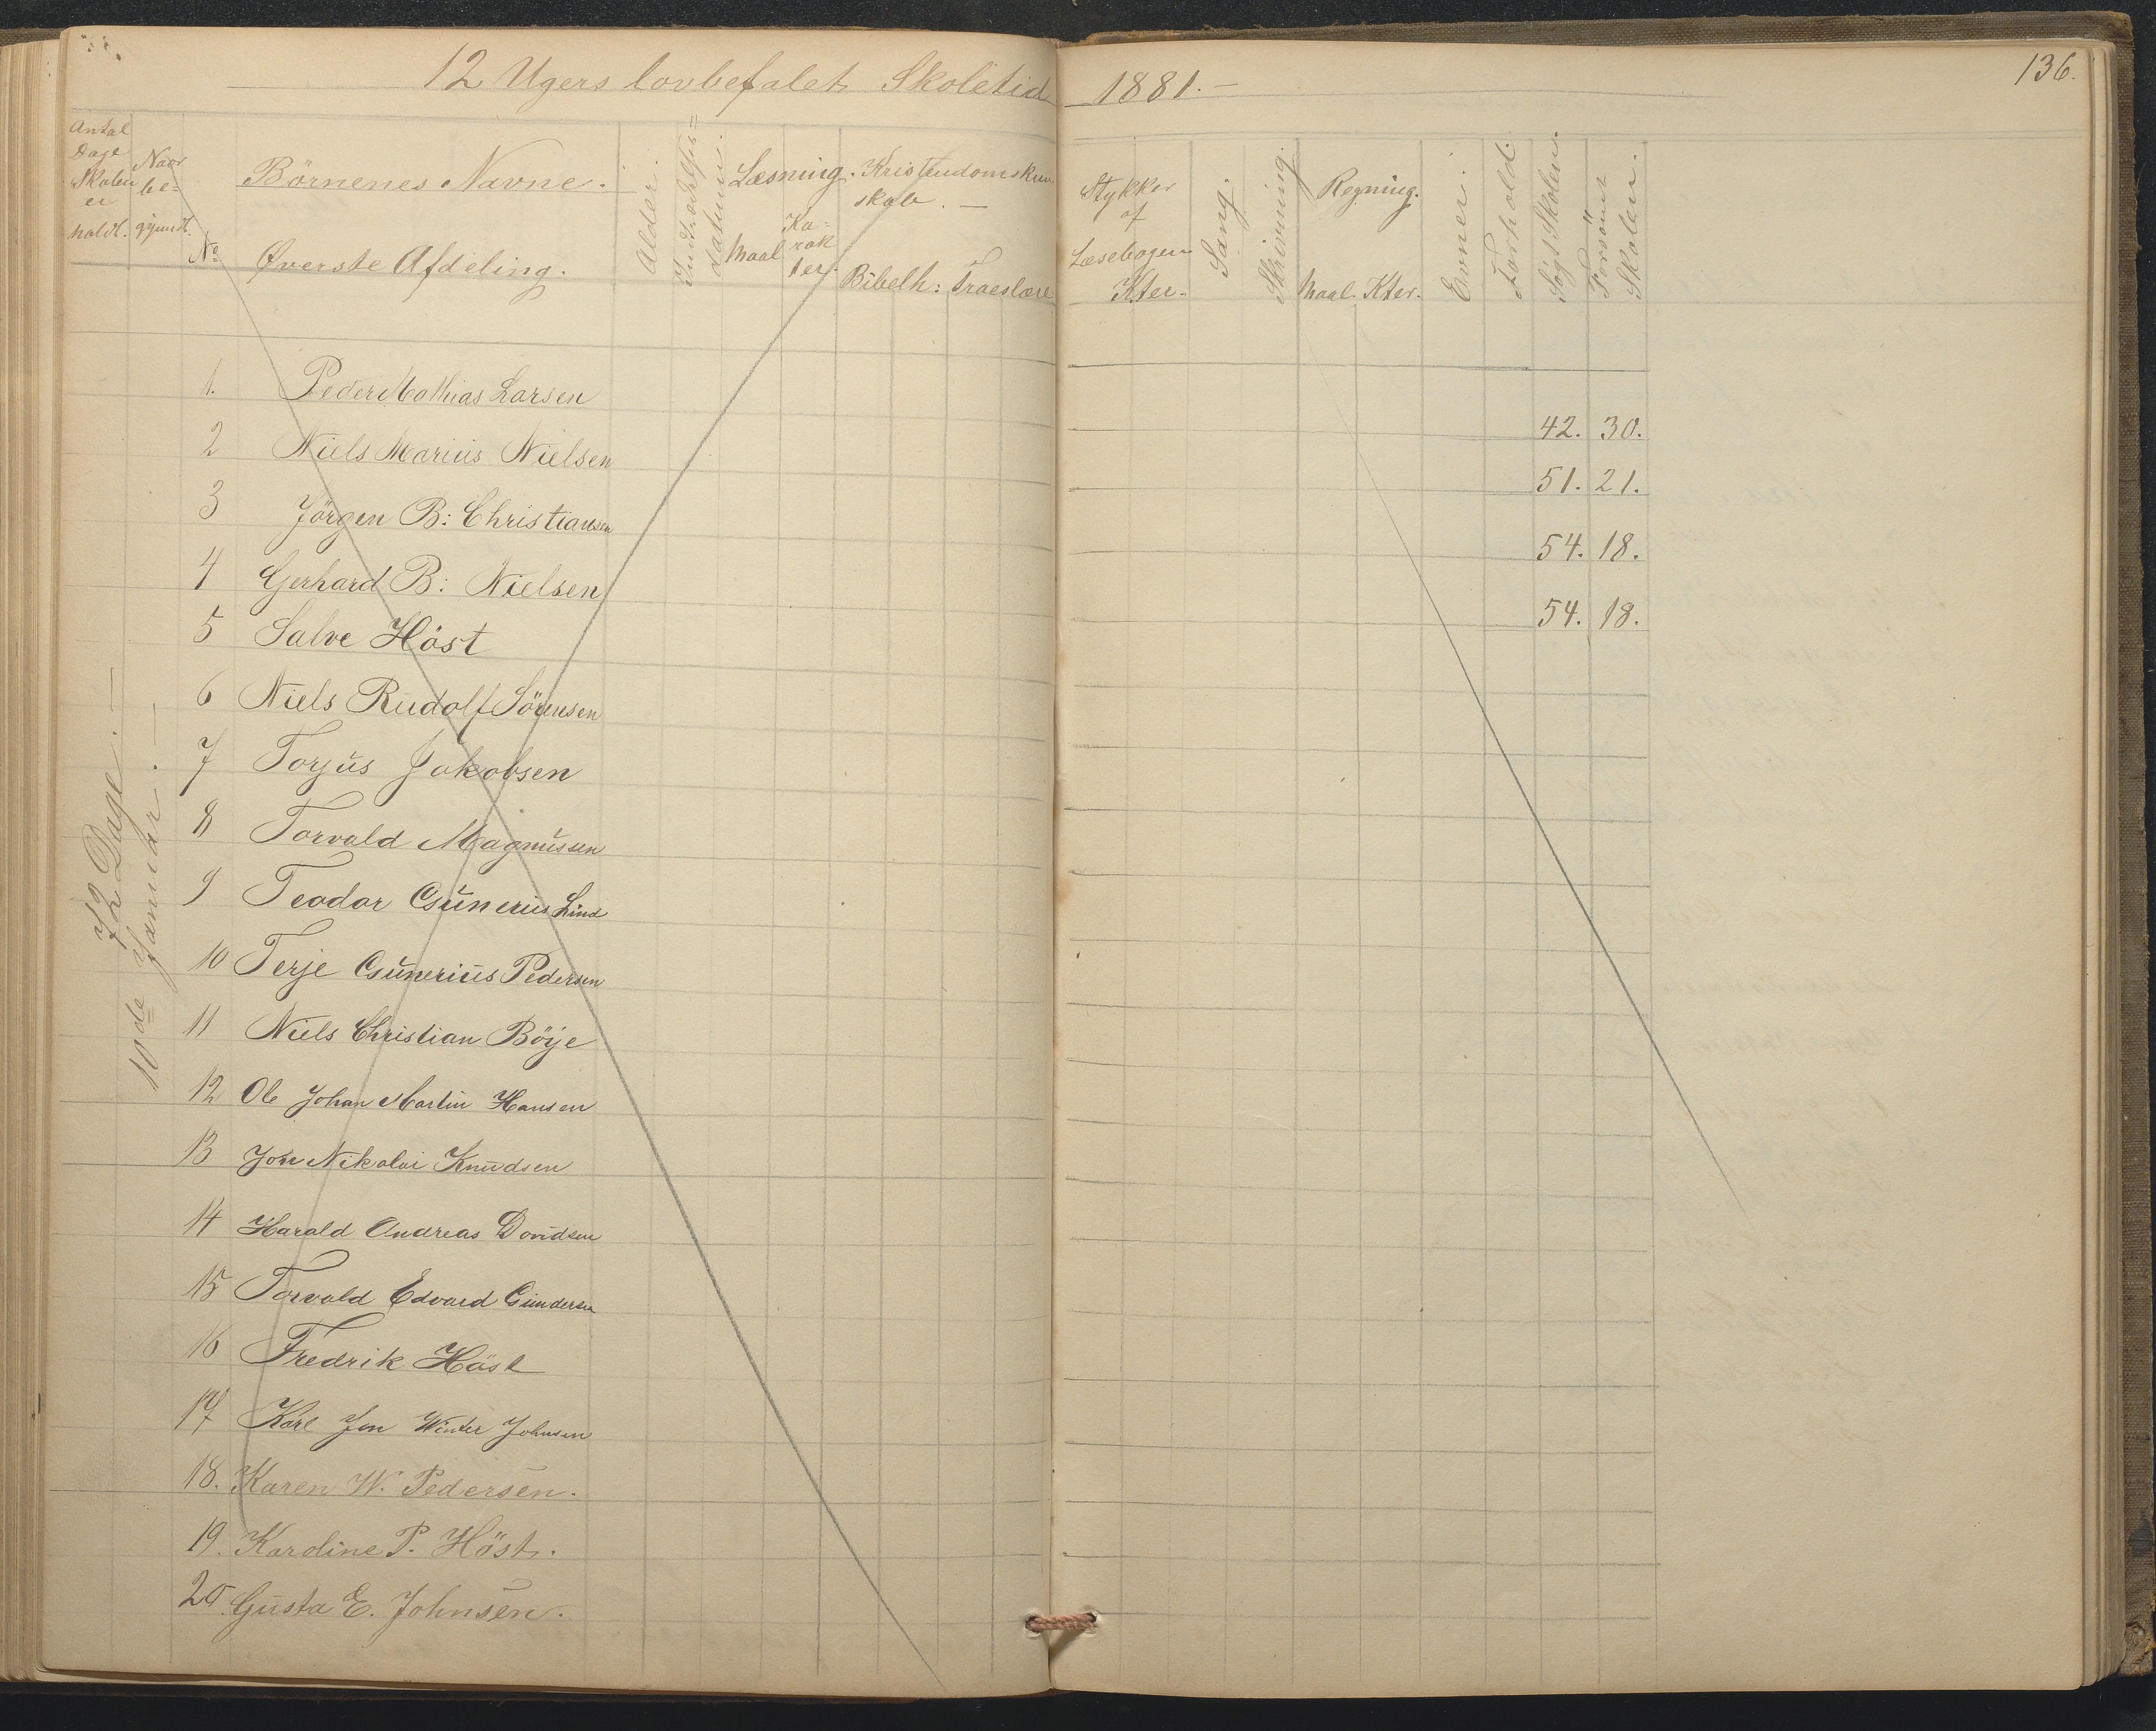 12 Ugers lovbefalet Skoletid 1881.-
136.
Antal Dage Skolen er holdt.
Naar be= gyndt.
No
Börnenes Navne.
Øverste Afdeling.
Alder.
Indtrædelses= datum.
Læsning.
Maal
Ka= rak ter.
Kristendomskun= skab. —
Bibelh:
Troeslære
Stykker af Læsebogen
Kter.
Sang.
Skrivning.
Regning.
Maal.
Kter.
Evner.
Forhold.
Søgt Skolen.
Forsömt Skolen.
72 Dage. —
10de Januar. —
1. Peder Mathias Larsen
2 Niels Marius Nielsen 42. 30.
3 Jörgen B: Christiansen 51. 21.
4 Gerhard B: Nielsen 54. 18.
5 Salve Höst 54. 18.
6 Niels Rudolf Sörensen
7 Torjus Jakobsen
8 Torvald Magnussen
9 Teodor Gunerius Lind
10 Terje Gunerius Pedersen
11 Niels Christian Böije
12 Ole Johan Martin Hansen
13 Jon Nikolai Knudsen
14 Harald Andreas Davidsen
15 Torvald Edvard Gundersen
16 Fredrik Höst
17 Karl Jon Winter Johnsen
18. Karen W. Pedersen.
19. Karoline P. Höst.
20. Gusta E. Johnsen.